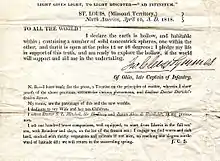 LIGHT GIVES LIGHT, TO LIGHT DISCOVER—"AD INFINITUM."
ST. LOUIS, (Missouri Territory,)
North America, April 10, A. D. 1818.
TO ALL THE WORLD!
I declare the earth is hollow, and habitable
within; containing a number of solid concentrick spheres, one within the
other, and that it is open at the poles 12 or 16 degrees; I pledge my life
in support of this truth, and am ready to explore the hollow, if the world
will support and aid me in the undertaking.
Jno. Cleves Symmes
Of Ohio, late Captain of Infantry.
N. B.—I have ready for the press, a Treatise on the principles of matter, wherein I show
proofs of the above positions, account for various phenomena, and
My terms, are the patronage of this and the new worlds.
I dedicate to my Wife and her ten Children.
I select
I ask one hundred brave companions, well equipped, to start from Siberia in the fall
with Reindeer and slays, on the ice of the frozen sea: I engage we find warm and rich
land, stocked with thrifty vegetables and animals if not men, on reaching one degree
of latitude 82; we will return in the succeeding spring.
J. C. S.